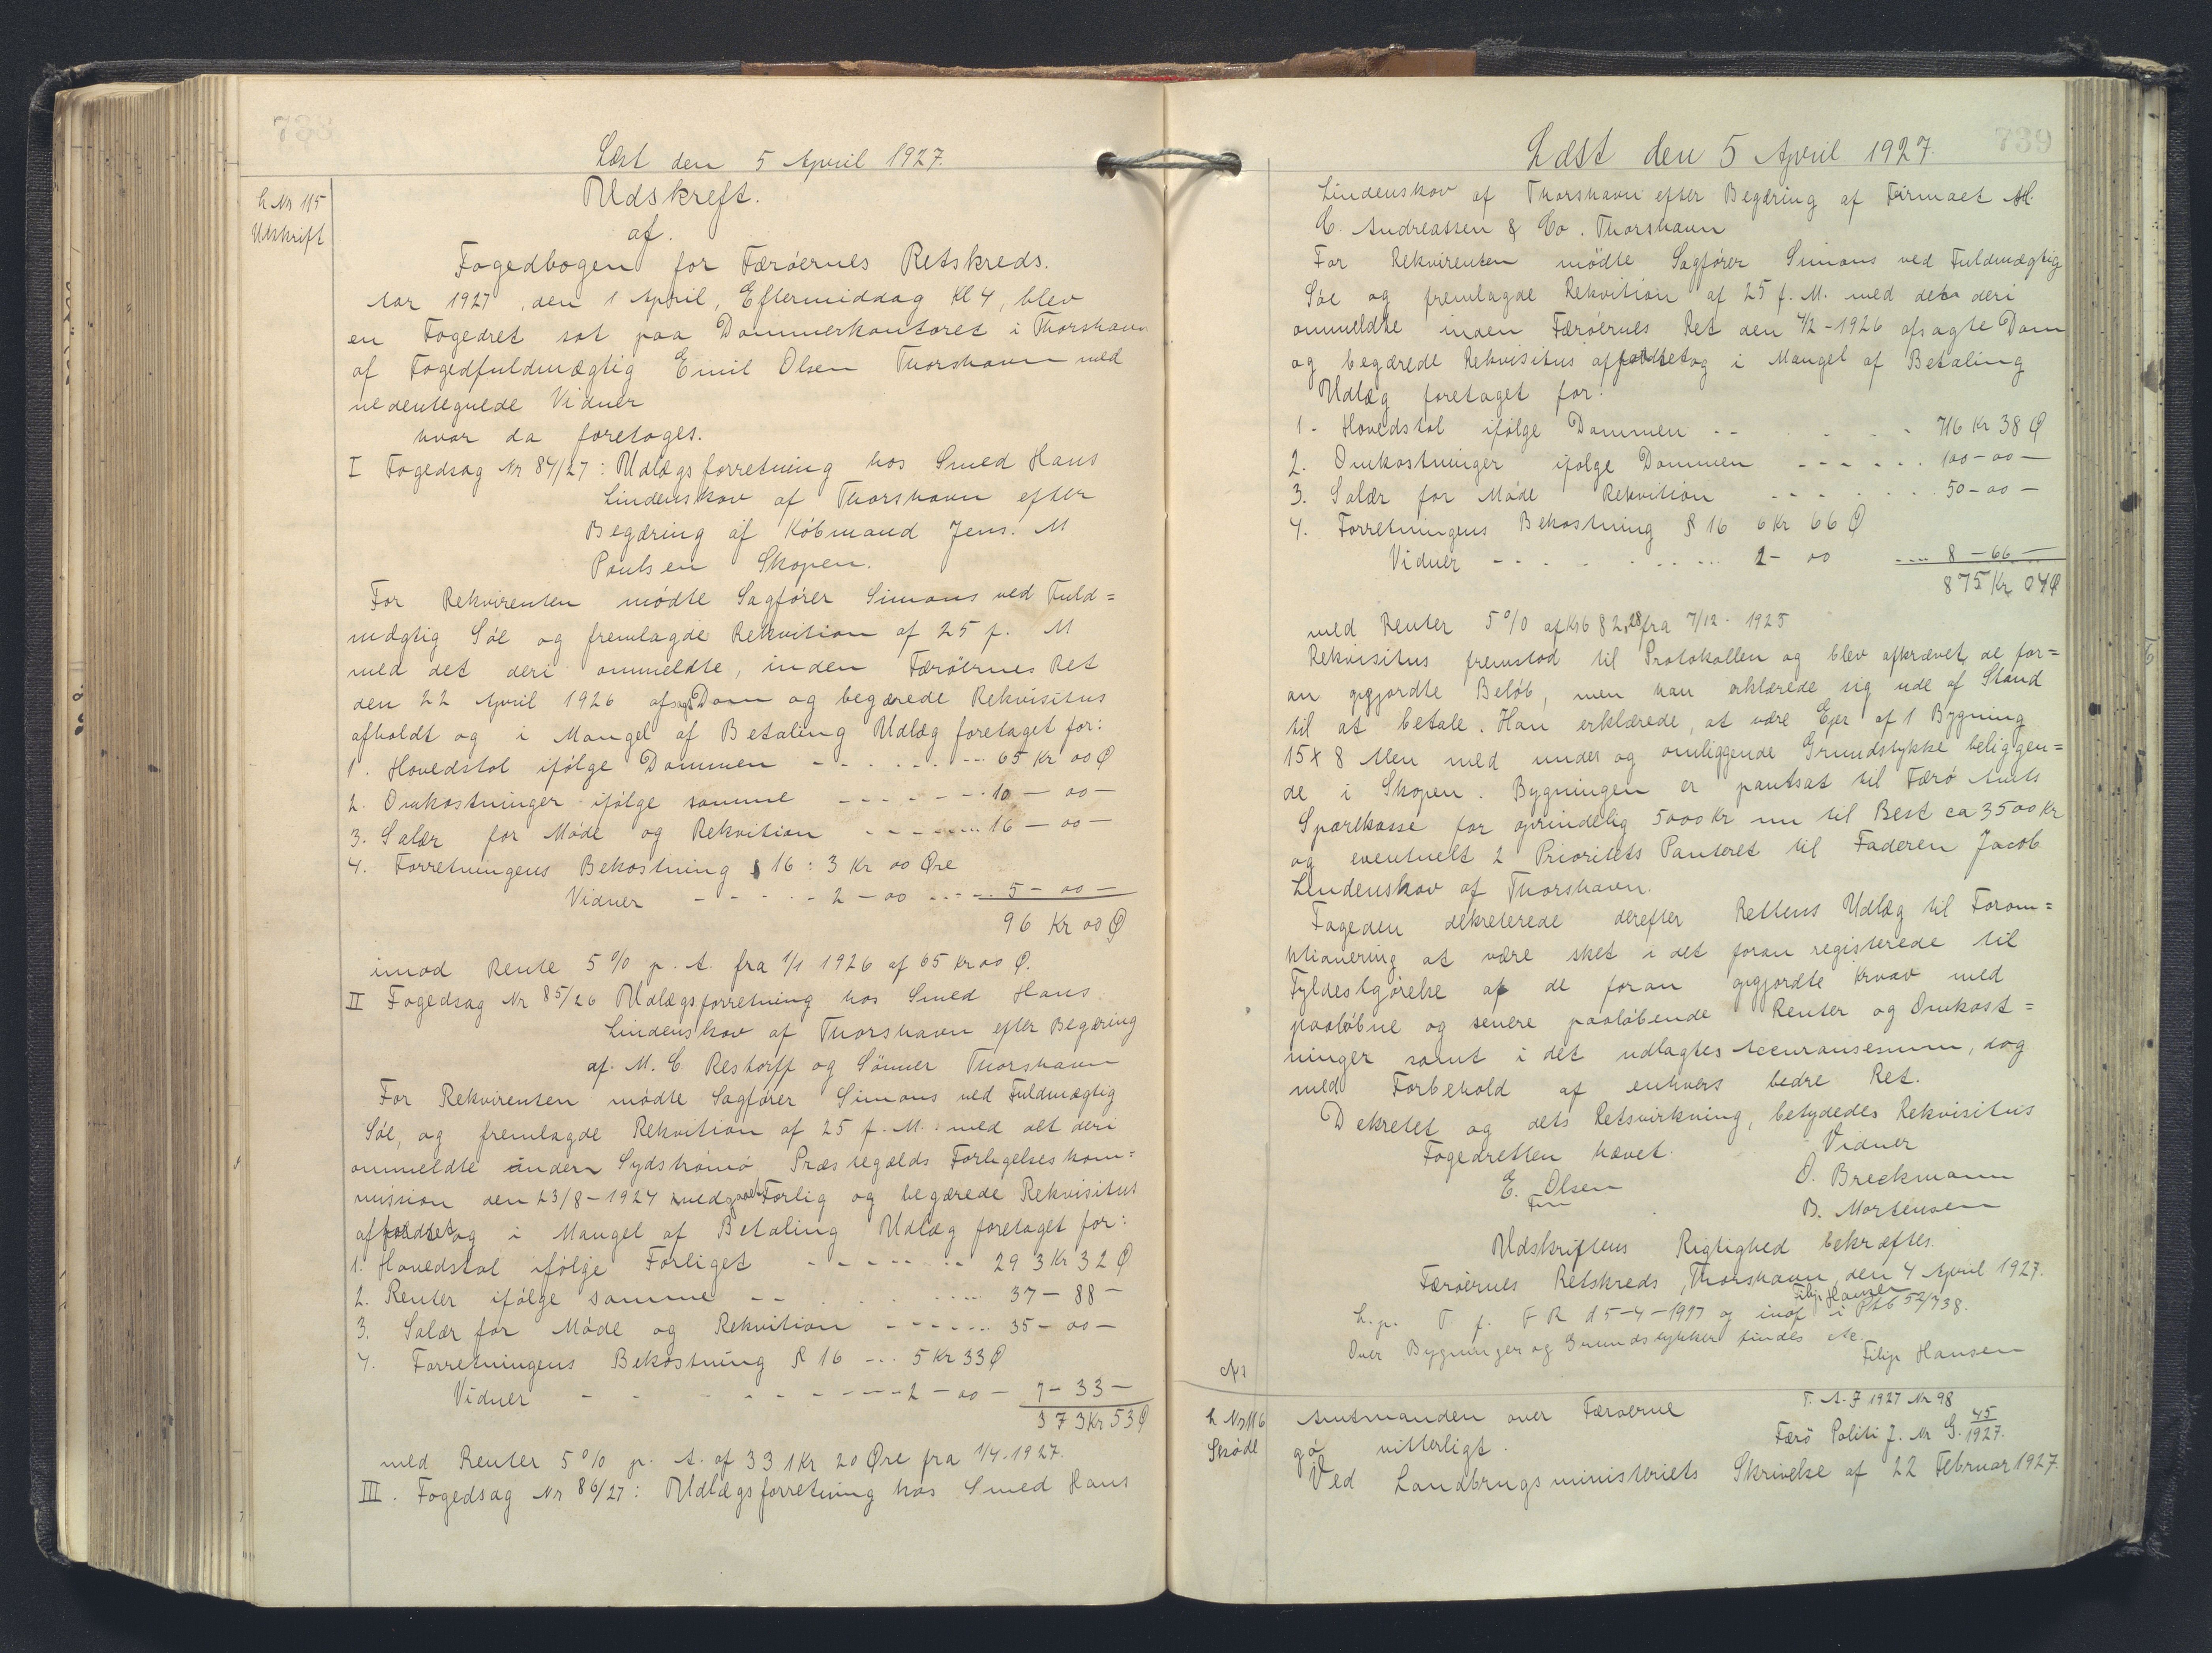 738
Læst den 5 April 1927.
L Nr 115
Udskrift
Udskreft.
af.
Fogedbogen for Færøernes Retskreds.
Aar 1927, den 1 April, Eftermiddag Kl 4, blev
en Fogedret sat paa Dommerkontoret i Thorshavn
af Fogedfuldmægtig Emil Olsen Thorshavn med
nedentegnede Vidner
hvor da foretoges.
I Fogedsag Nr 84/27: Udlægsforretning hos Smed Hans
Lindenskov af Thorshavn efter
Begæring af Købmand Jens. M
Poulsen Skopen.
For Rekvirenten mødte Sagfører Simons ved Fuld=
mægtig Søe og fremlagde Rekvition af 25 f. M
med det deri ommeldte, inden Færøernes Ret
den 22 April 1926 afsagt Dom og begærede Rekvisitus
afholdt og i Mangel af Betaling Udlæg foretaget for:
1. Hovedstol ifølge Dommen - - . . . . -- 65 Kr 00 Ø
2. Omkostninger ifølge samme - - - - - - 10 - 00 -
3. Salær for Møde og Rekvition - - - - ... 16 - 00 -
4. Forretningens Bekostning § 16: 3 Kr 00 Øre
Vidner - - - - - 2 - 00 ..- -. 5 - 00 -
96 Kr 00 Ø
imod Rente 5 % p. A. fra 1/1 1926 af 65 Kr 00 Ø.
II Fogedsag Nr 85/26 Udlægsforretning hos Smed Hans
Lindenskov af Thorshavn efter Begæring
af. M. C. Restorff og Sønner Thorshavn
For Rekvirenten mødte Sagfører Simons ved Fuldmægtig
Søe, og fremlagde Rekvition af 25 f. M. med det deri
ommeldte inden Sydstrømø Præstegælds Forligelseskom=
mission den 23/8 - 1924 indgaaet Forlig og begærede Rekvisitus
affordret og i Mangel af Betaling Udlæg foretaget for:
1. Hovedstol ifølge Forliget - - - - - - -- 293 Kr 32 Ø
2. Renter ifølge samme -- . . . . ---- 37 - 88 -
3. Salær for Møde og Rekvition - - - - -.. 35 - 00 -
4. Forretningens Bekostning § 16 -.. 5 Kr 33 Ø
Vidner - - - - - - - ---2 - 00 - 7 - 33 -
373 Kr 53 Ø
med Renter 5 % p. A. af 331 Kr 20 Øre fra 1/4. 1927.
III. Fogedsag Nr 86/27: Udlægsforretning hos Smed Hans
739
Læst den 5 April 1927.
Lindenskov af Thorshavn efter Begæring af Firmaet H.
C. Andreassen & Co. Thorshavn
For Rekvirenten mødte Sagfører Simons ved Fuldmægtig
Søe og fremlagde Rekvition af 25 f. M. med den deri
ommeldte inden Færøernes Ret den 4/2 - 1926 afsagte Dom
og begærede Rekvisitus affordret og i Mangel af Betaling
Udlæg foretaget for:
1 - Hovedstol ifølge Dommen - - . . - . . - 716 Kr 38 Ø
2. Omkostninger ifølge Dommen - - - - - . . 100 - 00 -
3. Salær for Møde Rekvition - - - . . . . 50 - 00 -
4. Forretningens Bekostning § 16 6 Kr 66 Ø
Vidner - - - . - . - ... 2 - 00 .... 8 - 66 -
875 Kr 04 Ø
med Renter 5 % af Kr 682,28 fra 7/12 - 1925
Rekvisitus fremstod til Protokollen og blev afkrævet de for=
an opgjordte Beløb, men han erklærede sig ude af Stand
til at betale. Han erklærede, at være Ejer af 1 Bygning
15 x 8 Alen med under og omliggende Grundstykke beliggen=
de i Skopen. Bygningen er pantsat til Færø Amts
Sparekasse for oprindelig 5000 Kr nu til Rest ca 3500 Kr
og eventuelt 2 Prioritets Panteret til Faderen Jacob
Lindenskov af Thorshavn.
Fogeden dekreterede derefter Rettens Udlæg til Forom=
ntionering at være sket i det foran registerede til
Fyldestgørelse af de foran opgjordte Krvav med
paaløbne og senere paaløbende Renter og Omkost=
ninger samt i det udlagtes Accuransesum, dog
med Forbehold af enhvers bedre Ret.
Dekretet og dets Retsvirkning, betydedes Rekvisitus
Fogedretten hævet. Vidner
E. Olsen O. Breckmann
Fm B. Mortensen
Udskriftens Rigtighed bekræftes.
Færøernes Retskreds, Thorshavn, den 4 April 1927.
Filip Hansen
L. p. T f. F R d 5 - 4 - 1927 og indf i Ptb 52/738.
Over Bygninger og Grundstykker findes Ae.
Filip Hansen
L Nr 116
Skøde
Amtmanden over Færøerne T. A. J 1927 Nr 98
gø vitterligt. Færø Politi J. Nr G. 45/1927.
Ved Landbrugsministeriets Skrivelse af 22 Februar 1927.